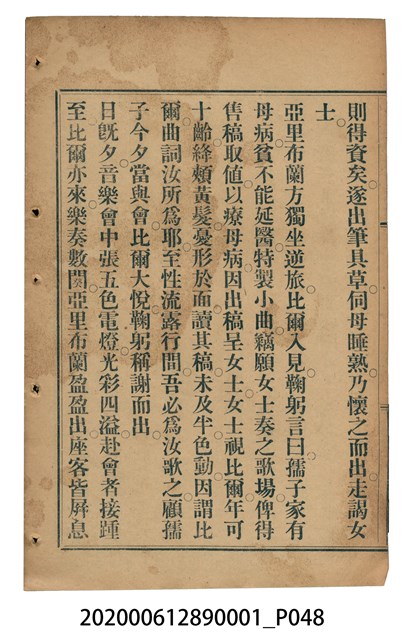 則得資矣遂出筆具草伺母睡熟乃懷之而出走謁女
士
亞里布蘭方獨坐逆旅比爾入見鞠躬言曰孺子家有
母病貧不能延醫特製小曲竊願女士奏之歌場俾得
售稿取値以療母病因出稿呈女士女士視比爾年可
十齡絳頰黃髮憂形於面讀其稿未及半色動因謂比
爾曲詞汝所爲耶至性流露行間吾必爲汝歌之顧孺
子今夕當與會比爾大悅鞠躬稱謝而出
日旣夕音樂會中張五色電燈光彩四溢赴會者接踵
至比爾亦來樂奏數闋亞里布蘭盈盈出座客皆屛息
202000612890001_P048